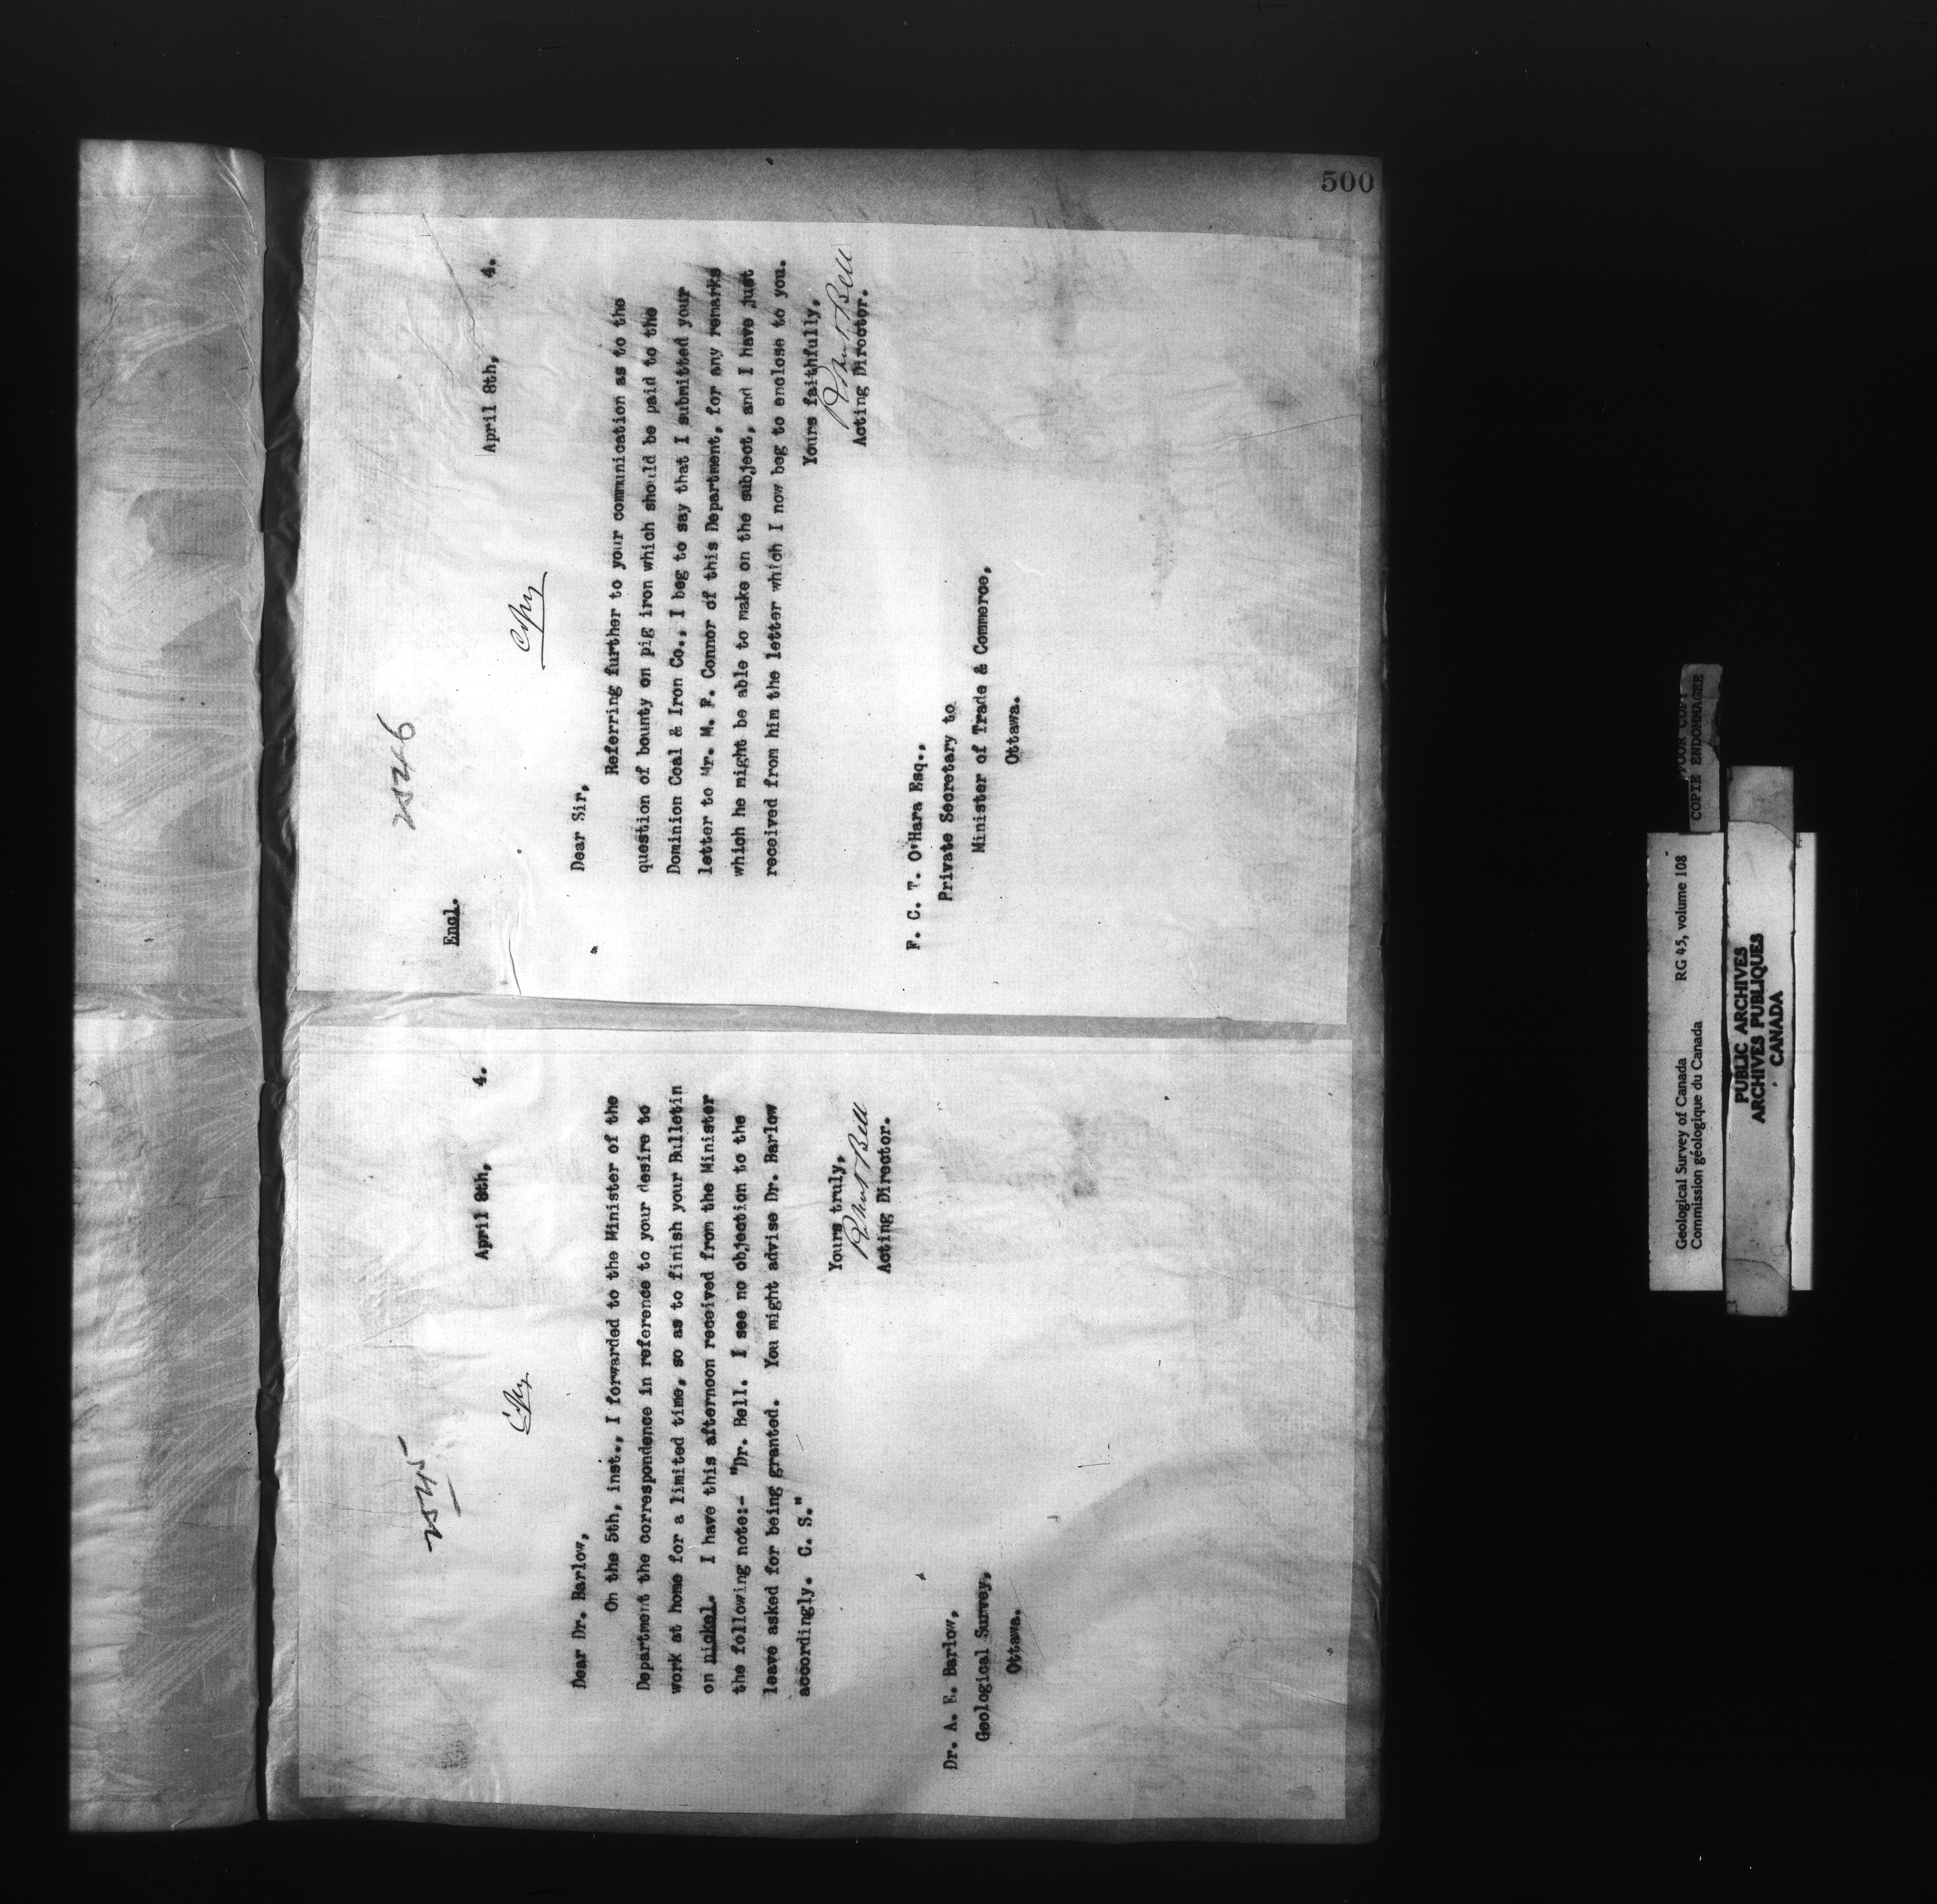 500
2545
April 8th, 4.
Copy
Dear Dr. Barlow,
On the 5th, inst., I forwarded to the Minister of the
Department the correspondence in reference to your desire to
work at home for a limited time, so as to finish your Bulletin
on nickel. I have this afternoon received from the Minister
the following note:- "Dr. Bell. I see no objection to the
leave asked for being granted. You might advise Dr. Barlow
accordingly. C. S."
Yours truly,
Robert Bell
Acting Director.
Dr. A. E. Barlow,
Geological Survey,
Ottawa.
2546
Encl.
April 8th, 4.
Copy
Dear Sir,
Referring further to your communication as to the
question of bounty on pig iron which should be paid to the
Dominion Coal & Iron Co., I beg to say that I submitted your
letter to Mr. M. F. Connor of this Department, for any remarks
which he might be able to make on the subject, and I have just
received from him the letter which I now beg to enclose to you.
Yours faithfully,
Robert Bell
Acting Director.
F. C. T. O'Hara Esq.,
Private Secretary to
Minister of Trade & Commerce,
Ottawa.
Geological Survey of Canada RG 45, volume 108
Commission géologique du Canada
PUBLIC ARCHIVES
ARCHIVES PUBLIQUES
CANADA
POOR COPY
COPIE ENDOMMAGEE